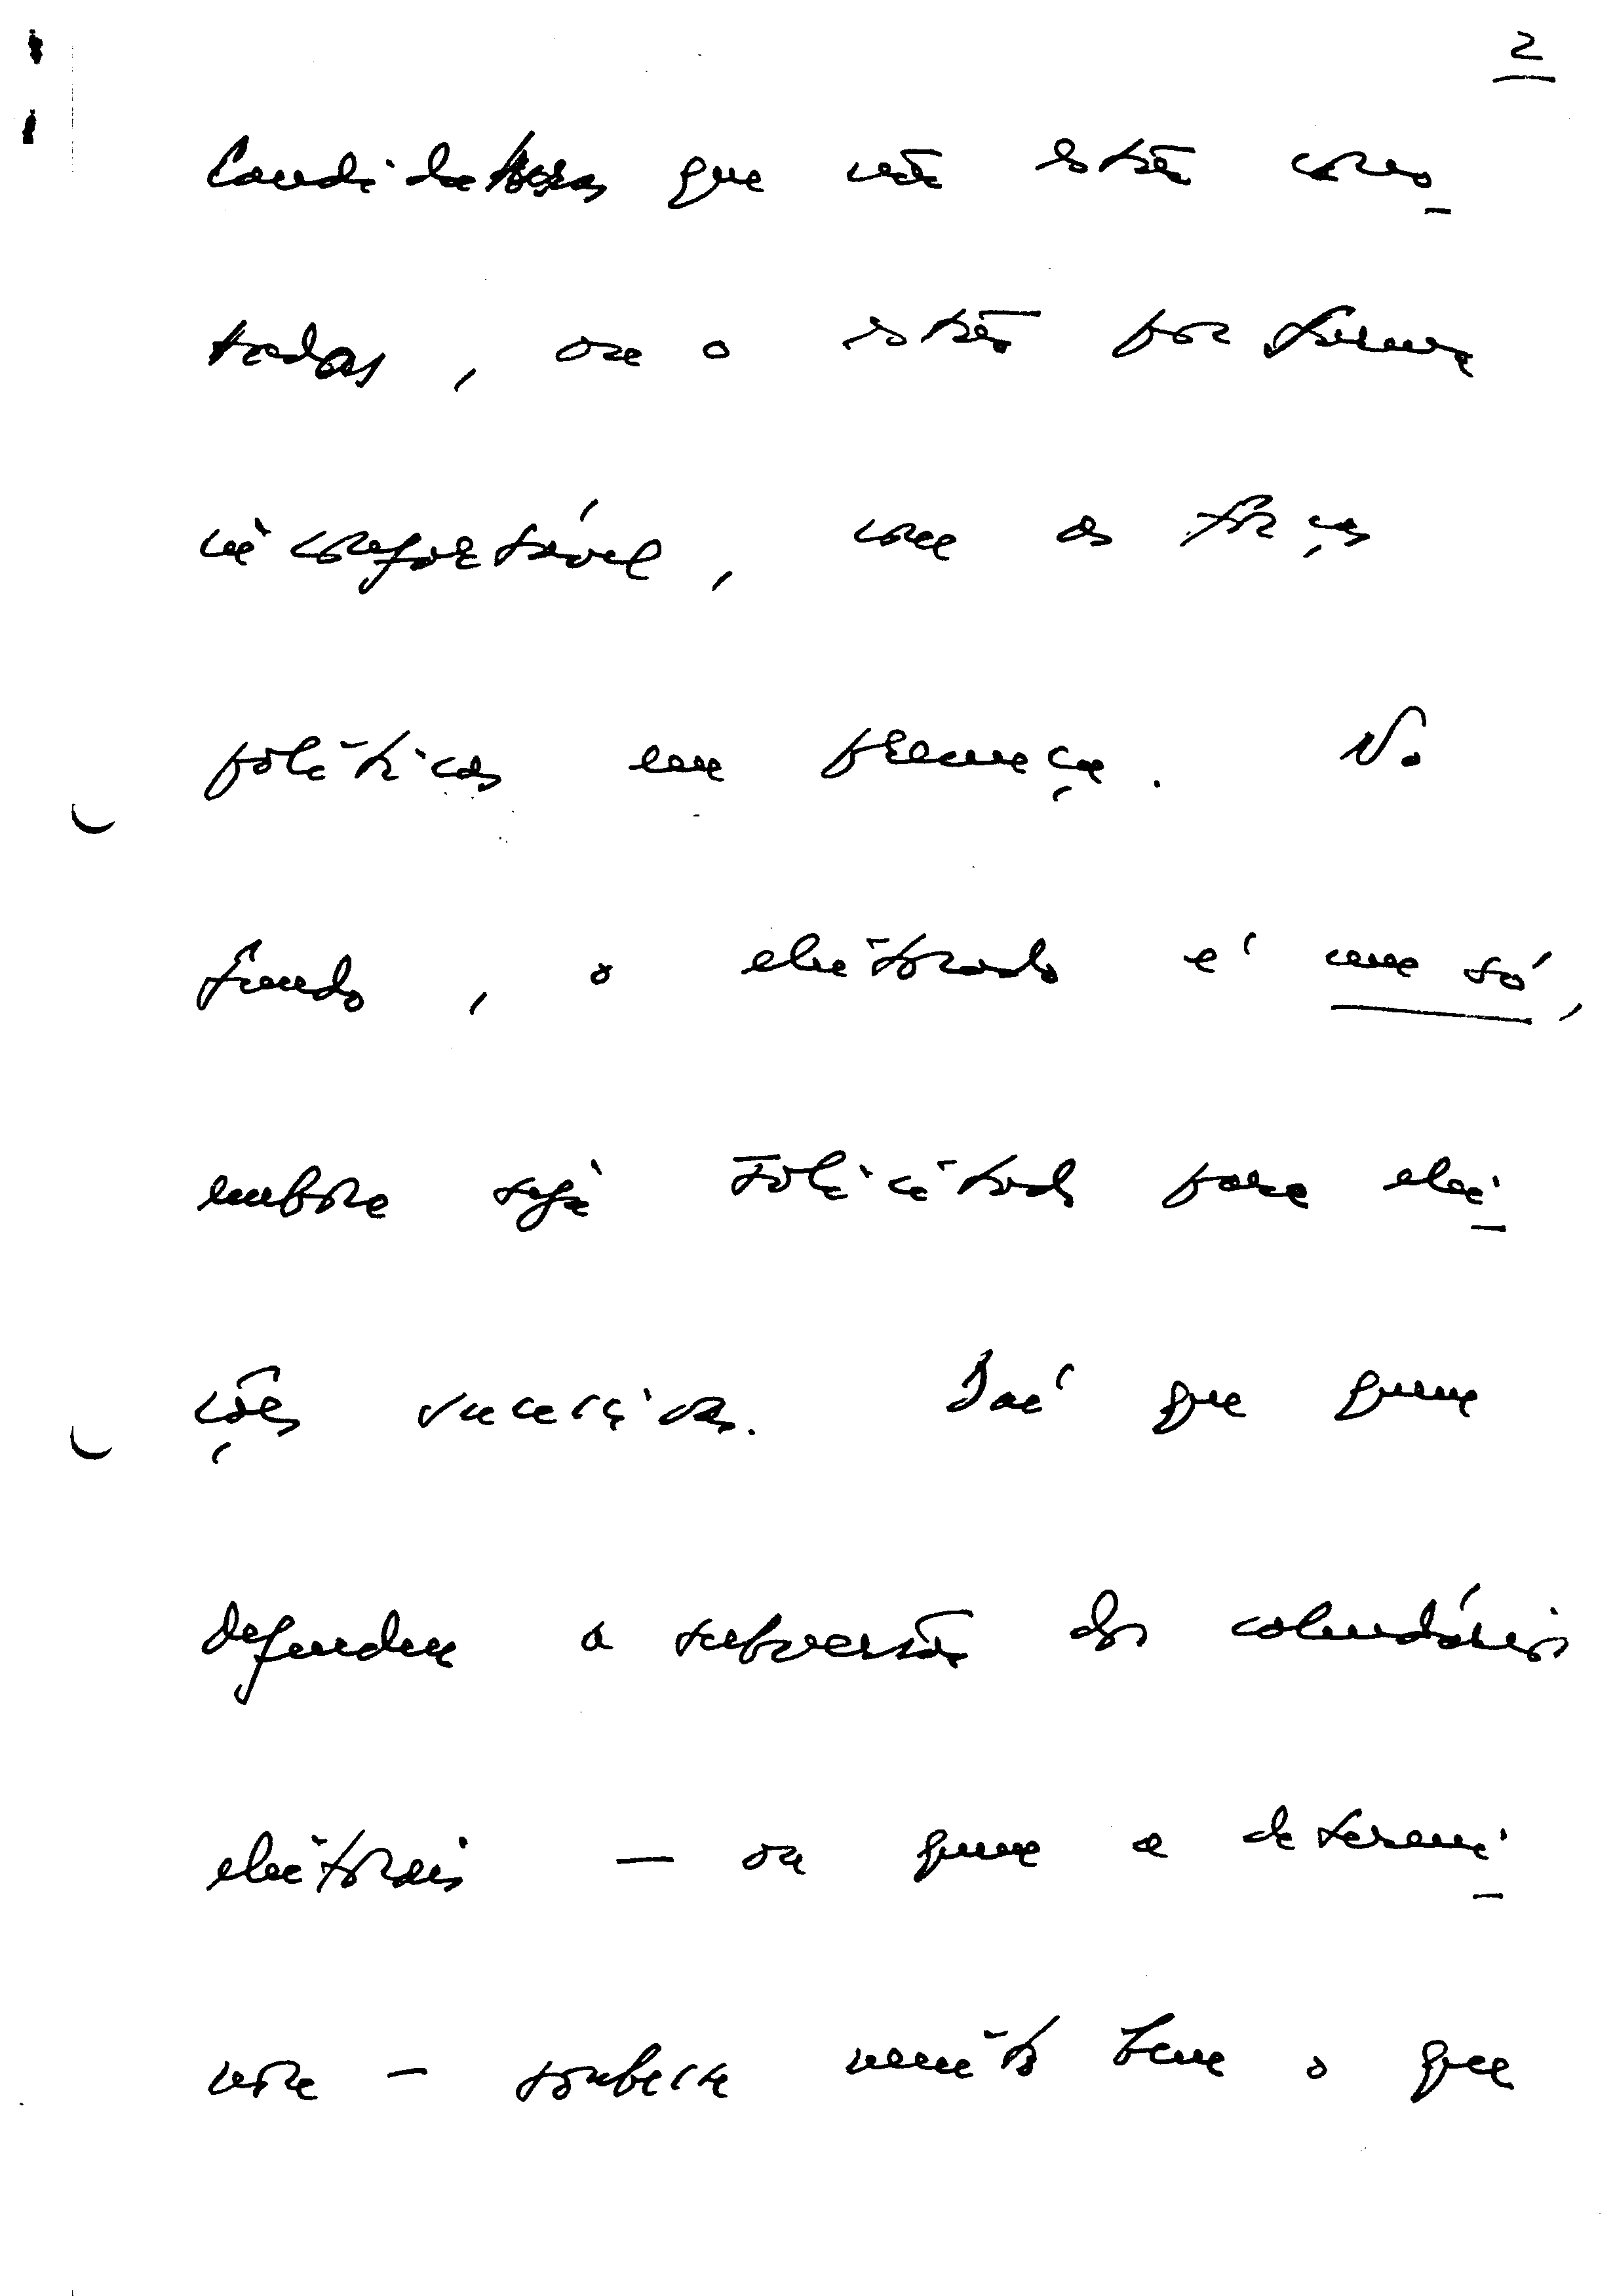 2
Candidaturas que não estão cono_
tadas, ou o estão por forma
inconfortável, com as forças
políticas em presença. No
fundo, o eleitorado é um só,
embora seja solicitado para elei_
ções sucessivas. Daí que quem
defendeu a subversão dos calendários
eleitorais — ou quem a determi_
nou — soubesse muito bem o que